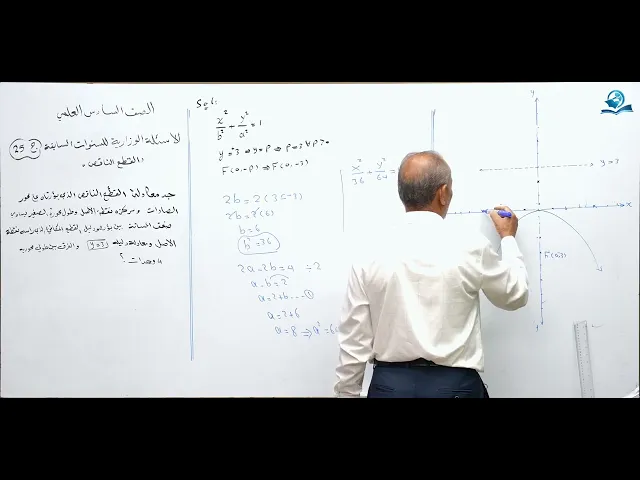 الصف السادس العلمي
الأسئلة الوزارية للسنوات السابقة ح 25
(القطع الناقص)
جد معادلة القطع الناقص الذي بؤرتاه على محور
الصادات ومركزه نقطة الأصل وطول محوره الصغير يساوي
ضعف المسافة بين بؤرة ودليل القطع المكافئ الذي رأسه نقطة
الأصل ومعادلة دليله y=3 والفرق بين طولي محوريه
4 وحدات؟
Sol:
x²/b² + y²/a² = 1
F(0,-p) ⇒ F(0,-3)
2b = 2(3--3)
2b = 2(6)
b = 6
b² = 36
2a-2b=4 ÷2
a-b=2
a=2+b ---- ①
a=2+6
a=8 ⇒ a²=64
x²/36 + y²/64 =
y
y=3
x
F(0,-3)